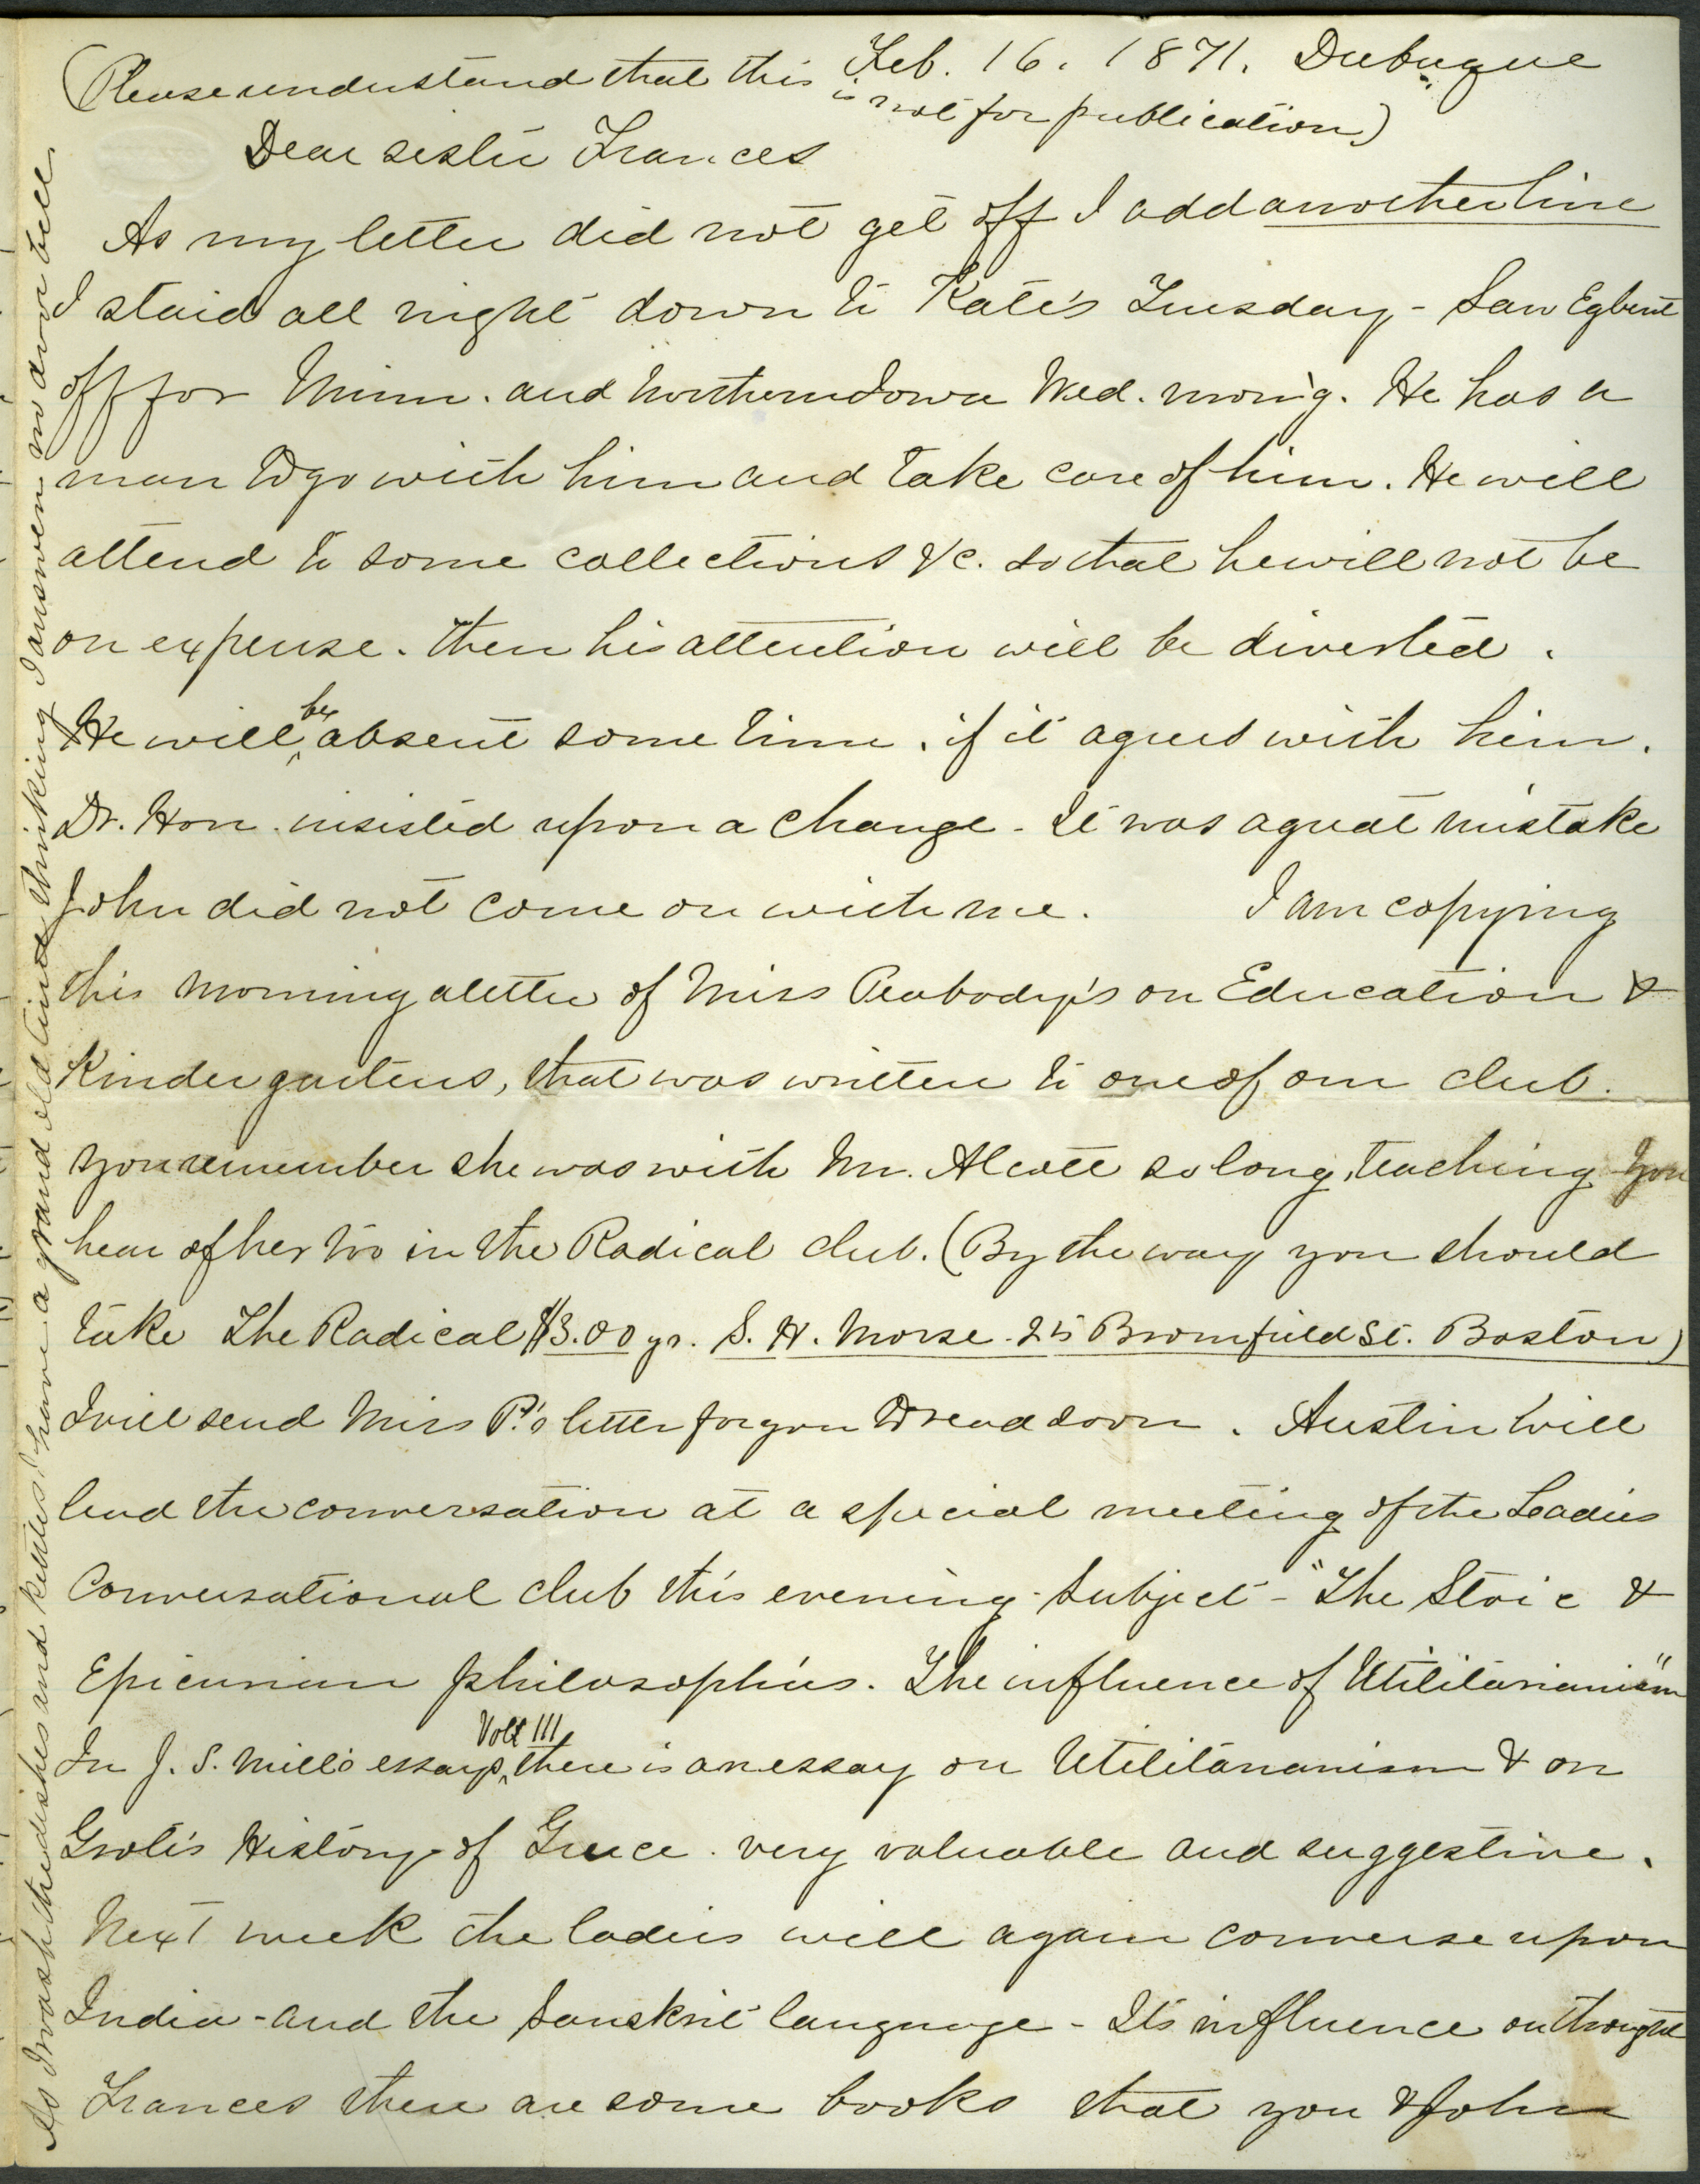 Feb. 16. 1871. Dubuque
(Please understand that this is not for publication)
Dear sister Frances
As my letter did not get off I add another line
I staid all night down to Kate's Tuesday - Saw Egbert
off for Minn. and Northern Iowa Wed. morn'g. He has a
man to go with him and take care of him. He will
attend to some collections &c. so that he will not be
on expense. Then his attention will be diverted.
He will be absent some time, if it agrees with him.
Dr. Hon. insisted upon a change - It was a great mistake
John did not come on with me. I am copying
this morning a letter of Miss Peabody's on Education &
Kindergartens, that was written to one of our club.
You remember she was with Mr. Alcott so long, teaching. You
hear of her too in the Radical club. (By the way you should
take The Radical $3.00 yr. S. H. Morse. 25 Bromfield St. Boston)
I will send Miss P.'s letter for you to read soon. Austin will
lead the conversation at a special meeting of the Ladies
Conversational club this evening - Subject - "The Stoic &
Epicurian philosophies. The influence of Utilitarianism"
In J. S. Mill's essays, Vol III there is an essay on Utilitarianism & on
Grote's History of Greece. very valuable and suggestive.
Next week the ladies will again converse upon
India - and the Sanskrit language - Its influence on thought
Frances there are some books that you & John
As I wash the dishes and kettles I have a grand old time thinking I answer my own bell